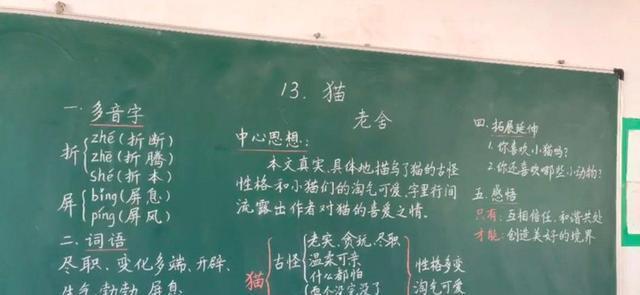 13. 猫
老舍
一. 多音字
折
zhé(折断)
zhē(折腾)
shé(折本)
屏
bǐng(屏息)
píng(屏风)
二. 词语
尽职、变化多端、开辟、
生气勃勃、屏息
中心思想:
本文真实、具体地描写了猫的古怪
性格和小猫们的淘气可爱,字里行间
流露出作者对猫的喜爱之情。
猫
古怪
老实、贪玩、尽职
温柔可亲
什么都怕
性格多变
淘气可爱
四. 拓展延伸
1. 你喜欢小猫吗?
2. 你还喜欢哪些小动物?
五. 感悟
只有: 互相信任、和谐共处
才能: 创造美好的境界